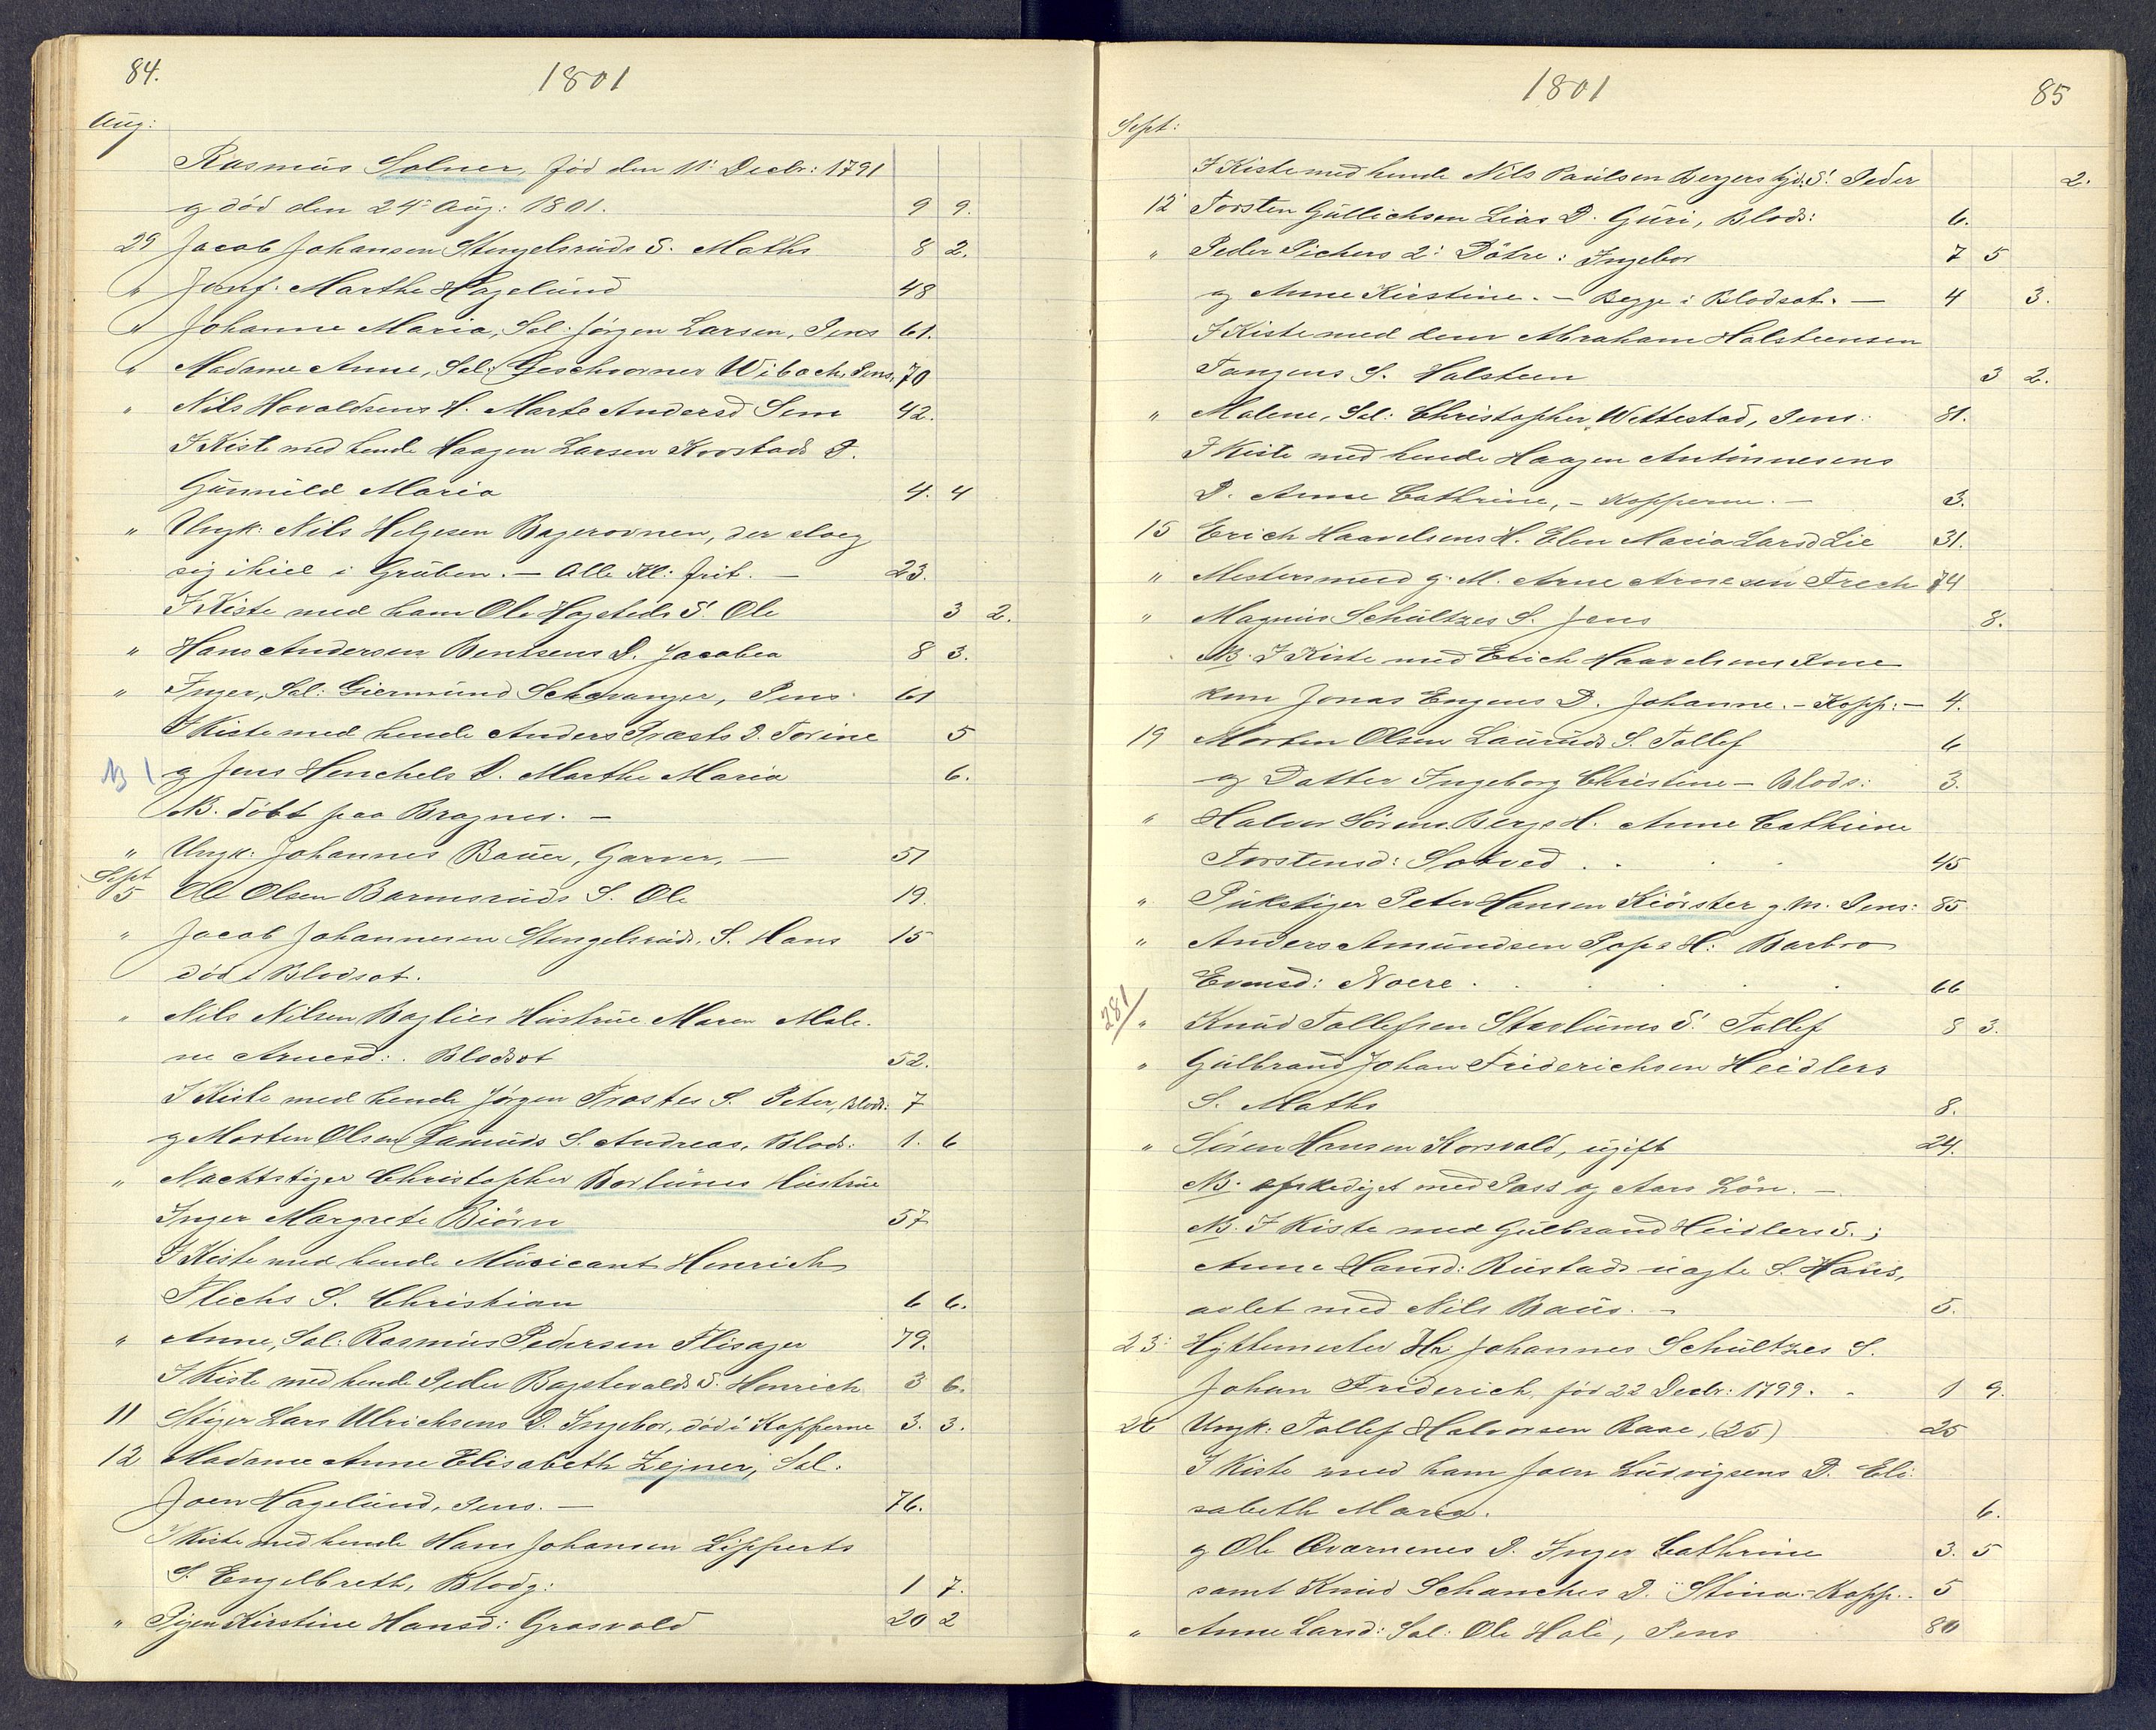 84.
1801
Aug:
Rasmus Solner, fød den 11: Decbr: 1791
g død den 24: Aug: 1801. 9 9.
29 Jacob Johansen Stengelsruds S. Maths 8 2.
" Jomf. Marthe Hagelund 48
" Johanne Maria, Sal: Jørgen Larsen, Pens 61.
" Madame Anne, Sal: Geschworner Wibach, Pens. 70
" Nils Hovaldsens H. Marte Andersd Sem 42.
I Kiste med hende Haagen Larsen Korstads D.
Gunnild Maria 4. 4
" Ungk: Nils Helgesen Bagerovnen, der slog
sig ihiel i Gruben. — Alle Kl: frit. — 23.
I Kiste med ham Ole Hagsteds S. Ole 3 2.
" Hans Andersen Bentsens D. Jacobea 8 3.
" Inger, Sal: Giermund Schavanger, Pens 61
I Kiste med hende Anders Præsts D. Torine 5
NB g Jens Henchels D. Marthe Maria 6.
NB. døbt paa Bragnes. —
" Ungk: Johannes Bauer, Garver, — 51
Sept
5 Ole Olsen Barmsruds S. Ole 19.
" Jacob Johannesen Stengelsruds S. Hans 15
død i Blodsot.
" Nils Nilsen Baglies Hustrue Maren Male-
ne Arnesd: . Blodsot 52.
I Kiste med hende Jørgen Trostes S. Peter, Blods: 7
g Morten Olsen Lauruds S. Andreas, Blods: 1. 6
" Nachtstiger Christopher Borlunes Hustrue
Inger Margrete Biörn 57
I Kiste med hende Musicant Henrich
Flichs S. Christian 6 6.
" Anne, Sal: Rasmus Pedersen Flisager 79.
I Kiste med hende Peder Bagstevolds S. Henrich 3 6.
11 Stiger Lars Ulrichsens D. Ingebor, død i Kopperne 3. 3.
12 Madame Anne Elisabeth Zejner, Sal:
Joen Hagelund, Pens. — 76.
I Kiste med hende Hans Johansen Lipperts
S. Engelbreth, Blodg: 1 7.
" Pigen Kirstine Hansd: Grosvold 20 2
1801
85
Sept:
I Kiste med hende Nils Paulsen Bergers S. Peder 2.
12 Torsten Gullichsen Lias D. Guri, Blods: 6.
" Peder Pichers 2: Døtre: Ingebor 7 5
og Anne Kirstine. — Begge i Blodsot. — 4 3.
I Kiste med dem Abraham Halsteensen
Tangens S. Halsteen 3 2.
" Malene, Sal: Christopher Wettestad, Pens: 81.
I Kiste med hende Haagen Antonnesens
D. Anne Cathrine, - Kopperne. — 3.
15 Erich Haavelsens H. Elen Maria Larsd Lie 31.
" Mestersmed g. M. Arne Arnesen Frech 74
" Magnus Schultzes S. Jens 8.
NB. I Kiste med Erich Haavelsens Kone
kom Jonas Engens D. Johanne. - Kopp: — 4.
19 Morten Olsen Lauruds S. Tollef 6
og Datter Ingeborg Christine — Blods: 3.
" Halvor Sörens. Bergs H. Anne Cathrine
Torstensd: Sotved . . . . 45
" Pukstiger Peter Hansen Kiörster g. M. Pens: 85
" Anders Amundsen Pops H: Barbro
Evensd: Noere . . . . . 66
281
" Knud Tollefsen Stavlunes S. Tollef 8 3.
" Gulbrand Johan Friderichsen Heidlers
S. Maths 8.
" Sören Hansen Korsvold, ugift 24.
NB. afskediget med Pass og Aars Lön. —
NB. I Kiste med Gulbrand Heidlers S.;
Anne Hansd: Rustads uægte S. Hans,
avlet med Nils Baus. — 5.
23: Hyttemester Hr. Johannes Schultzes S.
Johan Friderich, föd 22 Decbr: 1799. - 1 9.
26 Ungk: Tollef Halvorsen Raae, (25) 25
I Kiste med ham Joen Ludvigsens D. Eli-
sabeth Maria. 6.
g Ole Qvarnenes D. Inger Cathrine 3. 5
samt Knud Schanches D. Stina - Kopp. 5
" Anne Larsd: Sal: Ole Hole, Pens 80